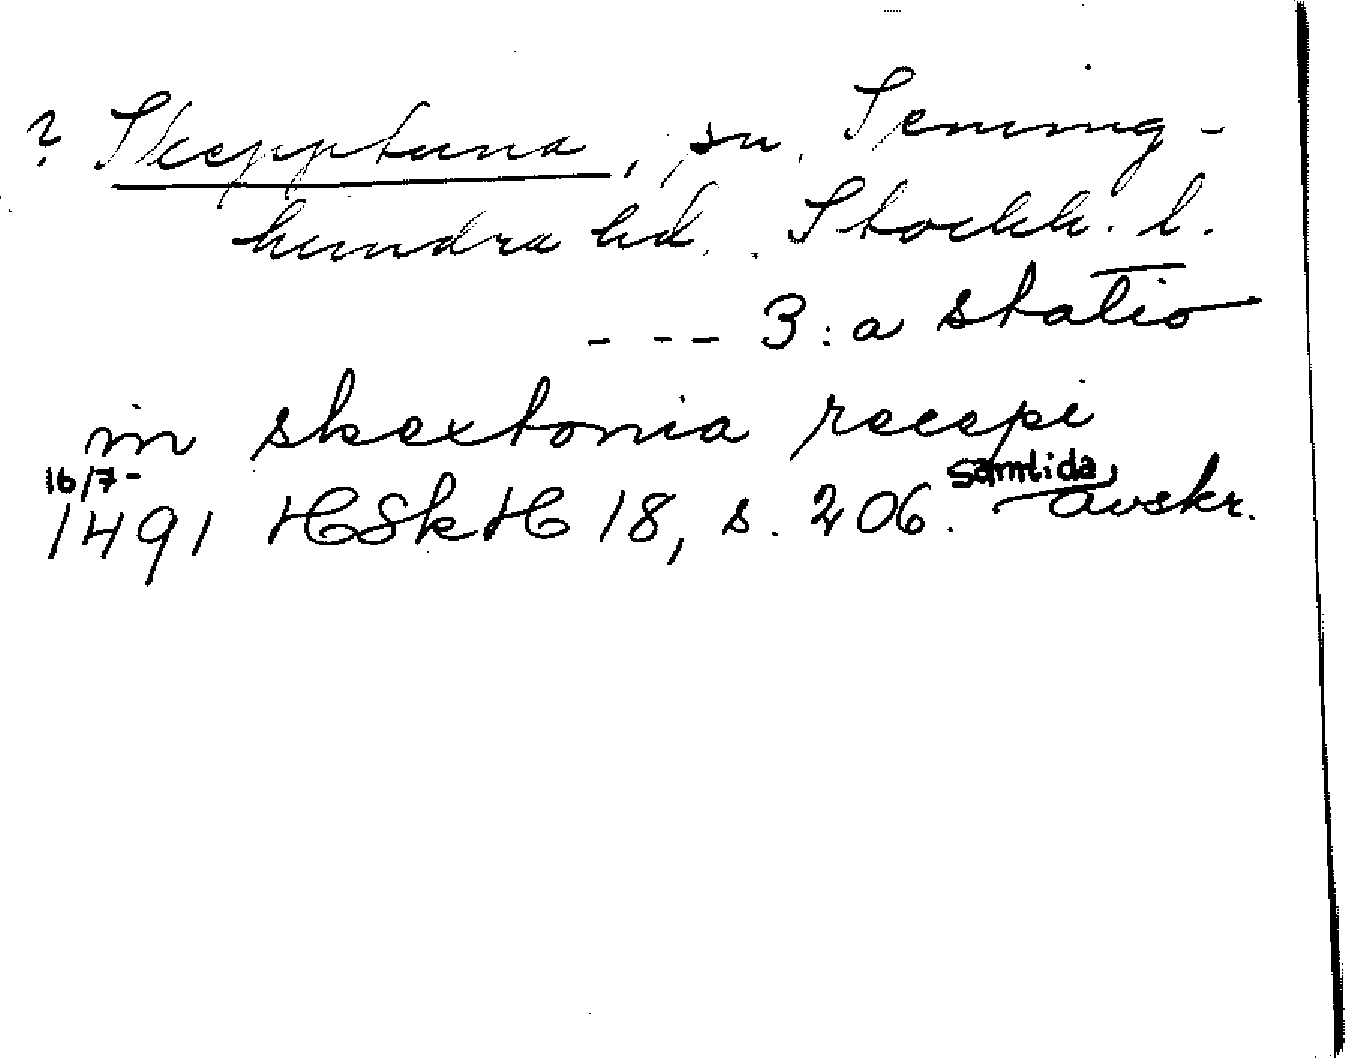 ? Skepptuna, sn. Seming-
hundra hd. Stockh. l.
--- 3:a statio
in skextonia recepi
16/7-
samtida
1491 HSkH 18, s. 206. avskr.